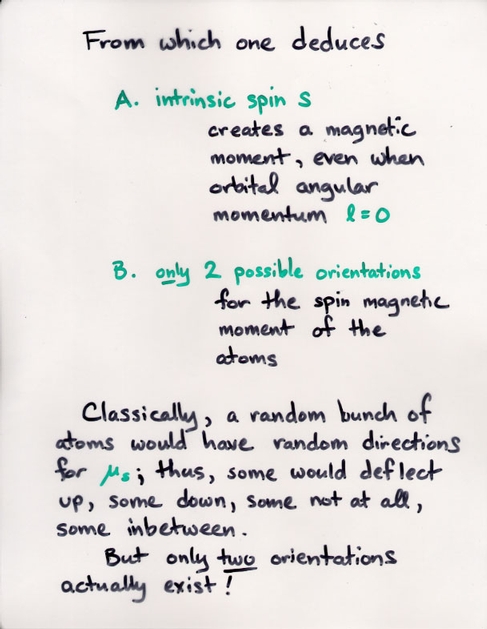 From which one deduces
A. intrinsic spin s
creates a magnetic
moment, even when
orbital angular
momentum l = 0
B. only 2 possible orientations
for the spin magnetic
moment of the
atoms
Classically, a random bunch of
atoms would have random directions
for μs; thus, some would deflect
up, some down, some not at all,
some inbetween.
But only two orientations
actually exist!